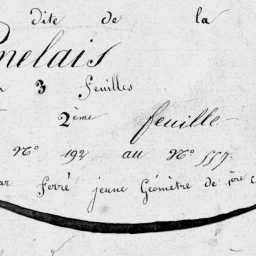 dite de la
nelais
3 feuilles
2ème feuille
Nº 192 au Nº 559.
ar Forré jeune Géomètre de 1ère c